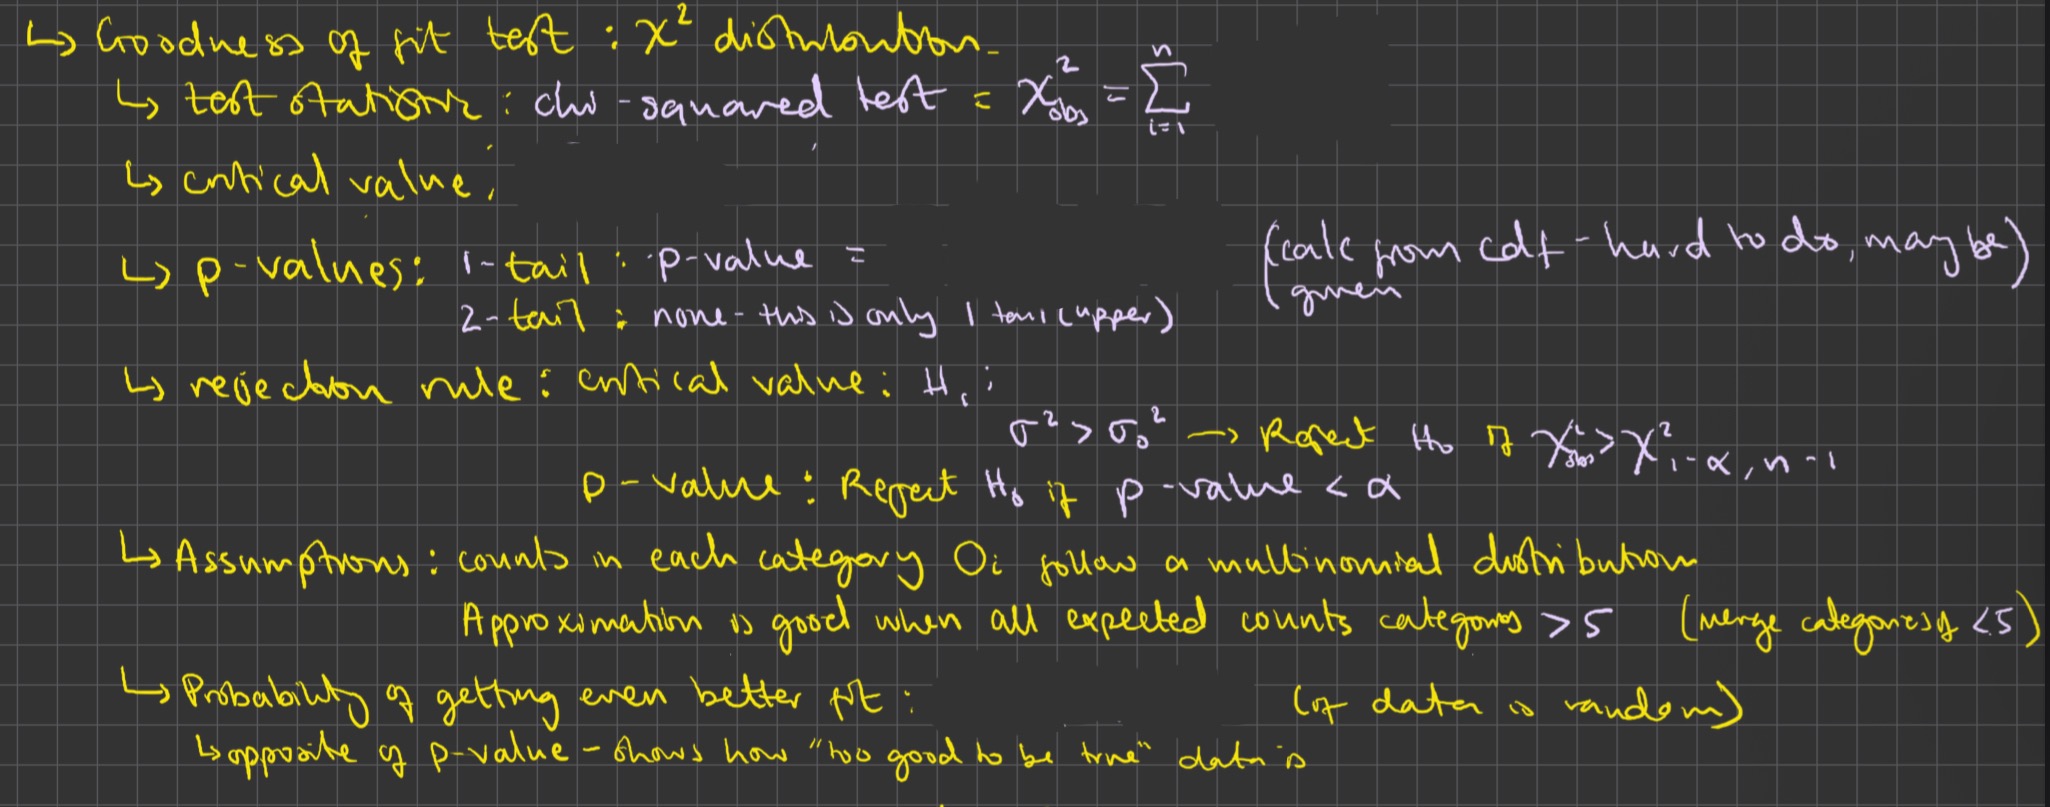 ↳ Goodness of fit test : χ² distribution
↳ test statistic : chi-squared test = χ²obs = Σ i=1 n
↳ critical value :
↳ p-values : 1-tail : p-value = (calc from cdf - hard to do, may be given)
2-tail : none - this is only 1 tail (upper)
↳ rejection rule : critical value : H₁ :
σ² > σ₀² → Reject H₀ if χ²obs > χ²1-α, n-1
p-value : Reject H₀ if p-value < α
↳ Assumptions : counts in each category Oi follow a multinomial distribution
Approximation is good when all expected counts categories > 5 (merge categories if < 5)
↳ Probability of getting even better fit : (if data is random)
↳ opposite of p-value - shows how "too good to be true" data is